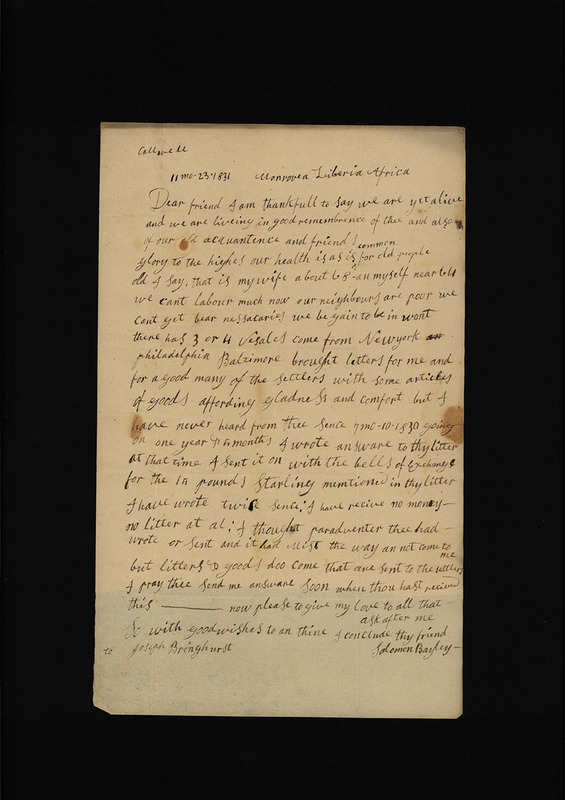 Callwell
11 mo-23-1831 Monrovea Liberia Africa
Dear friend I am thankfull to say we are yet alive
and we are liveing in good remembrence of thee and also
of our old acquantence and friends
glory to the highes our health is as is common for old people
old I say, that is my wife about 68 an myself near
we cant labour much now our neighbours are poor we
cant get bear nessacaries we be gain to be in wont
there has 3 or 4 Vesales come from Newyork
philadelphia Baltimore brought letters for me and
for a good many of the settlers with some articles
of goods affording gladness and comfort but I
have never heard from thee sence 7 mo-10-1830 going
on one year months I wrote answare to thy litter
at that time I sent it on with the bells of Exchange
for the pounds Starling mentioned in thy litter
I have wrote twise sence; I have recive no money-
no litter at al; I thought paradventer thee had-
wrote or sent and it had Mist the way an not come to me
but litters & goods doo come that are sent to the setlers
I pray thee send me answare soon when thou hast received
this ——— now please to give my love to all that
ask after me
So with good wishes to an thine I conclude thy friend
to Joseph Bringhurst Solomon Bayley-